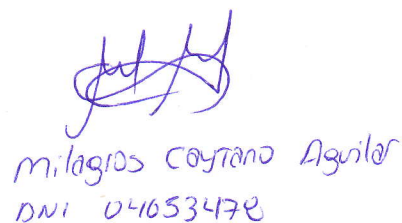 Milagros Caytano Aguilar
DNI 04053478